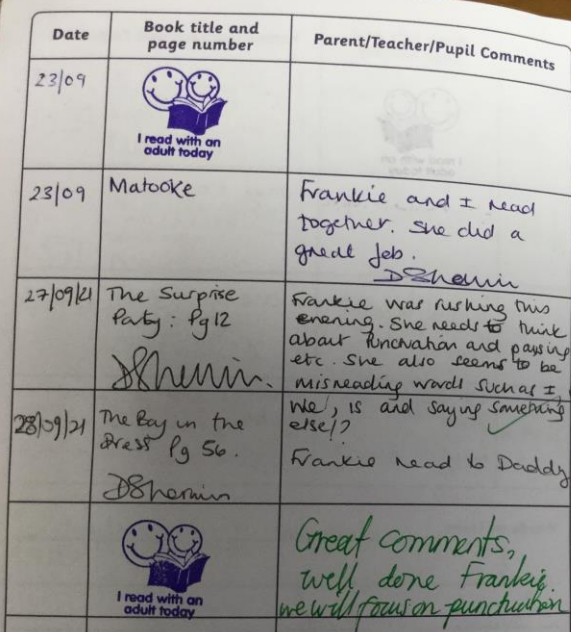 Date
Book title and
page number
Parent/Teacher/Pupil Comments
23/09
I read with an
adult today
23/09
Matooke
Frankie and I read
together. She did a
great job.
DShemin
27/09/21
The Surprise
Party: Pg 12
DShemin.
Frankie was rushing this
evening. She needs to think
about punctuation and pausing
etc. She also seems to be
misreading words such as I,
we, is and saying something
else!?
28/09/21
The Boy in the
Dress Pg 56.
DShemin
Frankie read to Daddy
I read with an
adult today
Great comments,
well done Frankie.
we will focus on punctuation